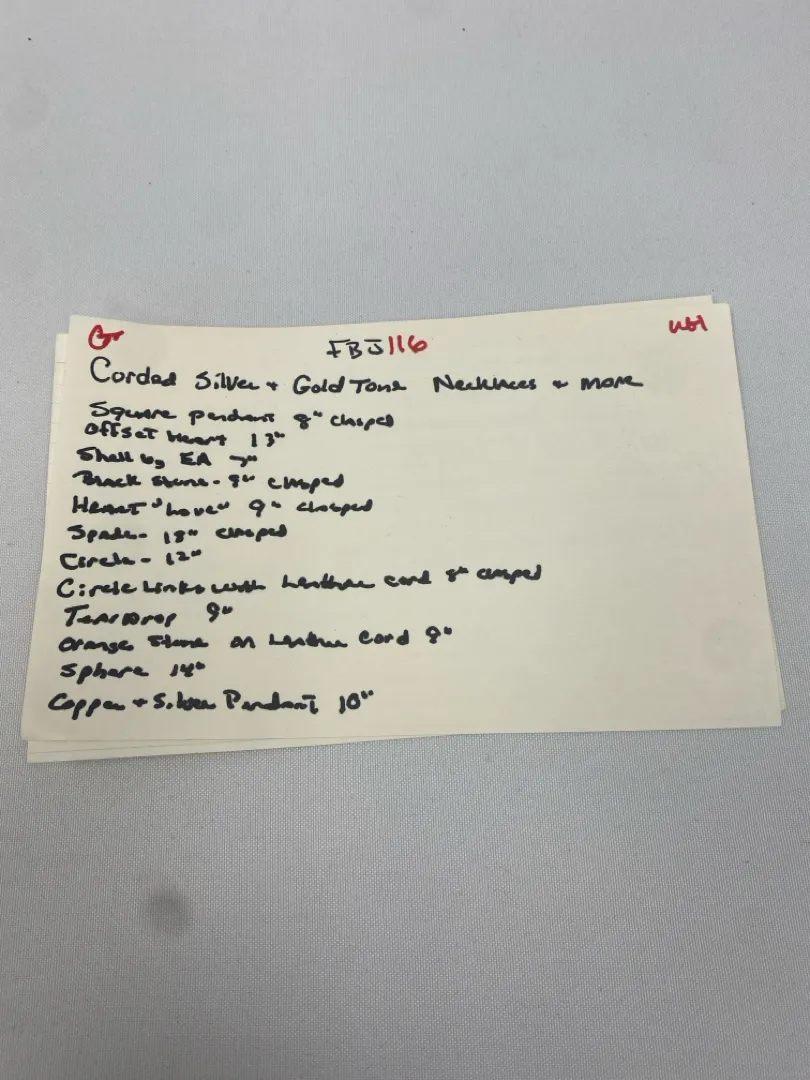 Gr
FBJ116
Corded Silver + Gold Tone Necklaces + more
Square pendant 8" clasped
Offset Heart 13"
Shell by EA 7"
Black Stone - 8" clasped
HEART "Love" 9" clasped
Spade - 18" clasped
Circle - 12"
Circle Links with Leather cord 8" clasped
Tear Drop 9"
Orange Stone on Leather Cord 9"
Sphere 14"
Copper + Silver Pendant 10"